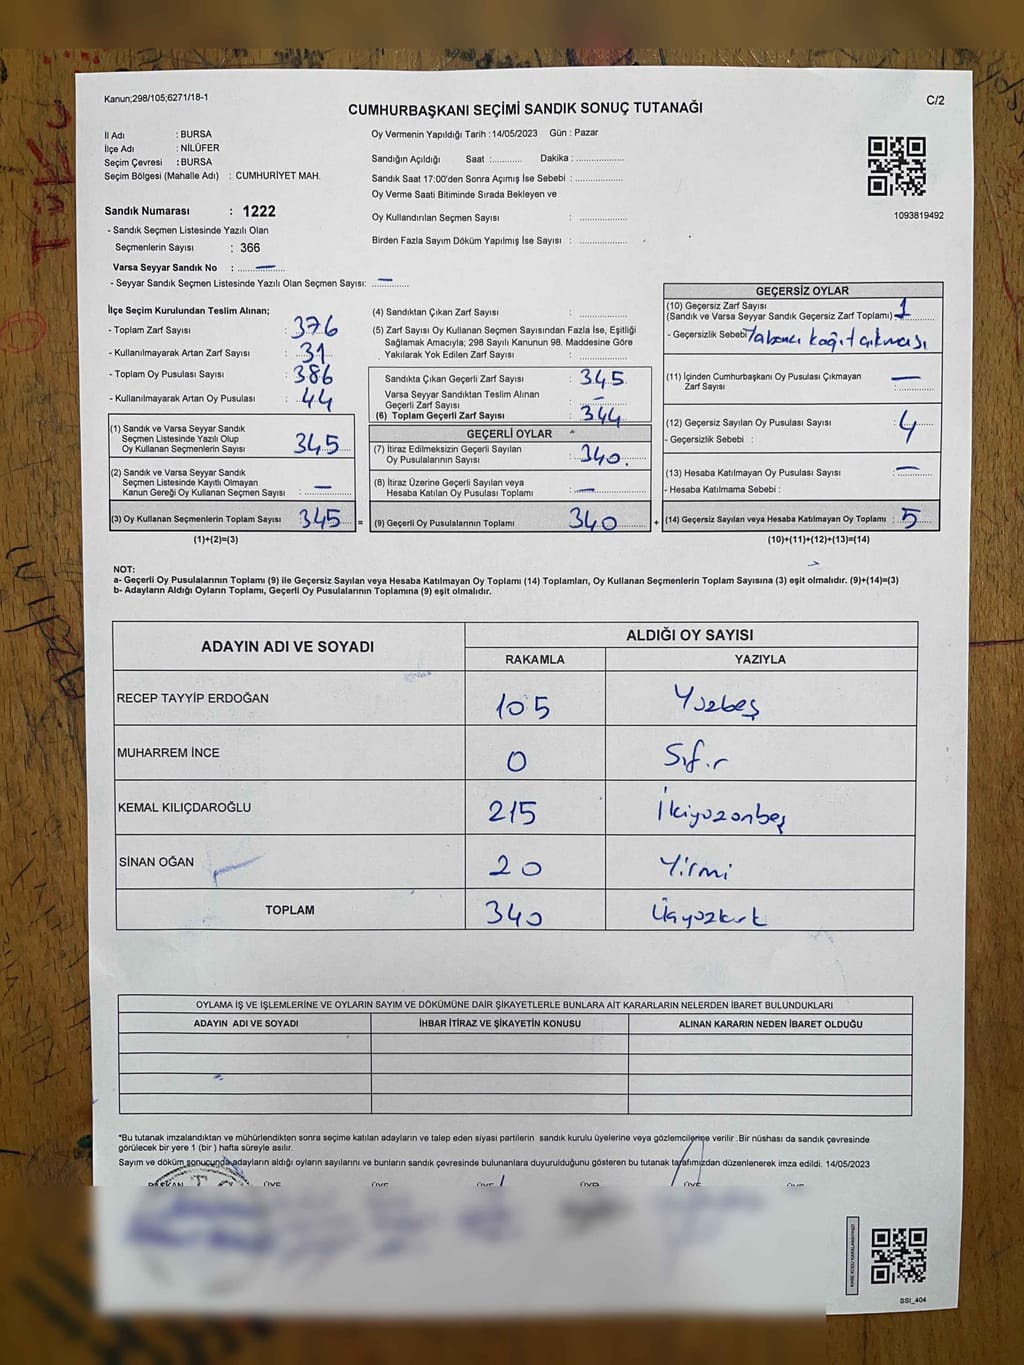 Kanun;298/105;6271/18-1
C/2
CUMHURBAŞKANI SEÇİMİ SANDIK SONUÇ TUTANAĞI
İl Adı : BURSA
İlçe Adı : NİLÜFER
Seçim Çevresi : BURSA
Seçim Bölgesi (Mahalle Adı) : CUMHURİYET MAH.
Sandık Numarası : 1222
- Sandık Seçmen Listesinde Yazılı Olan
Seçmenlerin Sayısı : 366
Varsa Seyyar Sandık No : —
- Seyyar Sandık Seçmen Listesinde Yazılı Olan Seçmen Sayısı: —
Oy Vermenin Yapıldığı Tarih :14/05/2023 Gün : Pazar
Sandığın Açıldığı Saat :........... Dakika : ..................
Sandık Saat 17:00'den Sonra Açımış İse Sebebi : ..................
Oy Verme Saati Bitiminde Sırada Bekleyen ve
Oy Kullandırılan Seçmen Sayısı : ..................
Birden Fazla Sayım Döküm Yapılmış İse Sayısı : ..................
1093819492
İlçe Seçim Kurulundan Teslim Alınan;
- Toplam Zarf Sayısı : 376
- Kullanılmayarak Artan Zarf Sayısı : 31
- Toplam Oy Pusulası Sayısı : 386
- Kullanılmayarak Artan Oy Pusulası : 44
(1) Sandık ve Varsa Seyyar Sandık
Seçmen Listesinde Yazılı Olup
Oy Kullanan Seçmenlerin Sayısı : 345
(2) Sandık ve Varsa Seyyar Sandık
Seçmen Listesinde Kayıtlı Olmayan
Kanun Gereği Oy Kullanan Seçmen Sayısı : —
(3) Oy Kullanan Seçmenlerin Toplam Sayısı 345 =
(1)+(2)=(3)
(4) Sandıktan Çıkan Zarf Sayısı : ..................
(5) Zarf Sayısı Oy Kullanan Seçmen Sayısından Fazla İse, Eşitliği
Sağlamak Amacıyla; 298 Sayılı Kanunun 98. Maddesine Göre
Yakılarak Yok Edilen Zarf Sayısı : ..................
Sandıkta Çıkan Geçerli Zarf Sayısı : 345
Varsa Seyyar Sandıktan Teslim Alınan
Geçerli Zarf Sayısı : —
(6) Toplam Geçerli Zarf Sayısı : 344
GEÇERLİ OYLAR
(7) İtiraz Edilmeksizin Geçerli Sayılan
Oy Pusulalarının Sayısı : 340.
(8) İtiraz Üzerine Geçerli Sayılan veya
Hesaba Katılan Oy Pusulası Toplamı : —
(9) Geçerli Oy Pusulalarının Toplamı 340 +
GEÇERSİZ OYLAR
(10) Geçersiz Zarf Sayısı
(Sandık ve Varsa Seyyar Sandık Geçersiz Zarf Toplamı) : 1
- Geçersizlik Sebebi Yabancı kağıt çıkması
(11) İçinden Cumhurbaşkanı Oy Pusulası Çıkmayan
Zarf Sayısı : —
(12) Geçersiz Sayılan Oy Pusulası Sayısı : 4
- Geçersizlik Sebebi :
(13) Hesaba Katılmayan Oy Pusulası Sayısı : —
- Hesaba Katılmama Sebebi :
(14) Geçersiz Sayılan veya Hesaba Katılmayan Oy Toplamı : 5
(10)+(11)+(12)+(13)=(14)
NOT:
a- Geçerli Oy Pusulalarının Toplamı (9) ile Geçersiz Sayılan veya Hesaba Katılmayan Oy Toplamı (14) Toplamları, Oy Kullanan Seçmenlerin Toplam Sayısına (3) eşit olmalıdır. (9)+(14)=(3)
b- Adayların Aldığı Oyların Toplamı, Geçerli Oy Pusulalarının Toplamına (9) eşit olmalıdır.
ADAYIN ADI VE SOYADI ALDIĞI OY SAYISI
RAKAMLA YAZIYLA
RECEP TAYYİP ERDOĞAN 105 Yüzbeş
MUHARREM İNCE 0 Sıfır
KEMAL KILIÇDAROĞLU 215 İkiyüzonbeş
SİNAN OĞAN 20 Yirmi
TOPLAM 340 Üçyüzkırk
OYLAMA İŞ VE İŞLEMLERİNE VE OYLARIN SAYIM VE DÖKÜMÜNE DAİR ŞİKAYETLERLE BUNLARA AİT KARARLARIN NELERDEN İBARET BULUNDUKLARI
ADAYIN ADI VE SOYADI İHBAR İTİRAZ VE ŞİKAYETİN KONUSU ALINAN KARARIN NEDEN İBARET OLDUĞU
*Bu tutanak imzalandıktan ve mühürlendikten sonra seçime katılan adayların ve talep eden siyasi partilerin sandık kurulu üyelerine veya gözlemcilerine verilir .Bir nüshası da sandık çevresinde
görülecek bir yere 1 (bir ) hafta süreyle asılır.
Sayım ve döküm sonucunda adayların aldığı oyların sayılarını ve bunların sandık çevresinde bulunanlara duyurulduğunu gösteren bu tutanak tarafımızdan düzenlenerek imza edildi. 14/05/2023
BAŞKAN ÜYE ÜYE ÜYE ÜYE ÜYE
SSI_404